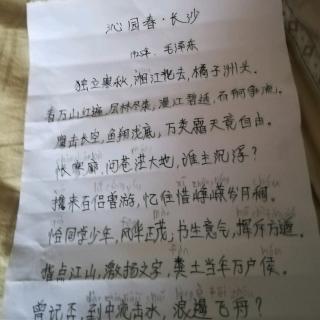 沁园春·长沙
毛泽东
独立寒秋,湘江北去,橘子洲头。
看万山红遍,层林尽染,漫江碧透,百舸争流。
鹰击长空,鱼翔浅底,万类霜天竞自由。
怅寥廓,问苍茫大地,谁主沉浮?
携来百侣曾游,忆往昔峥嵘岁月稠。
恰同学少年,风华正茂,书生意气,挥斥方遒。
指点江山,激扬文字,粪土当年万户侯。
曾记否,到中流击水,浪遏飞舟?